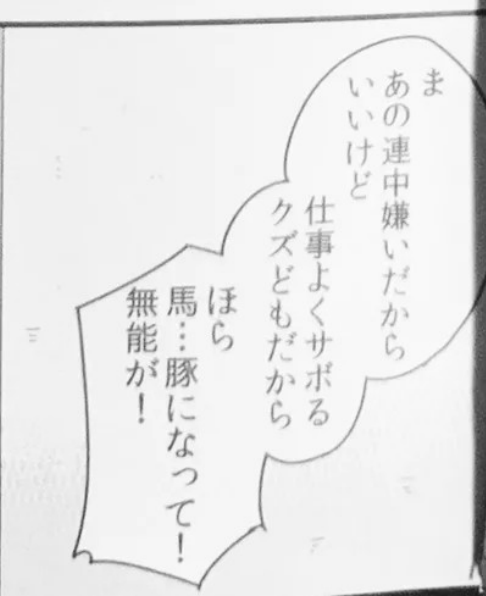 ま
あの連中嫌いだから
いいけど
仕事よくサボる
クズどもだから
ほら
馬…豚になって！
無能が！